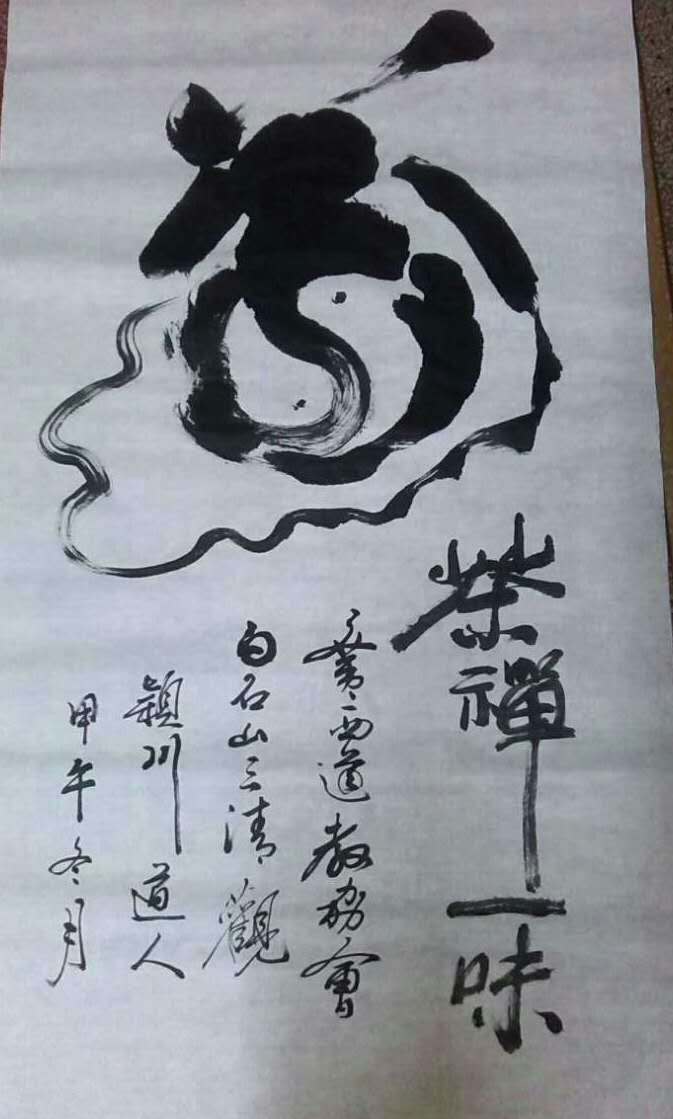 茶禪一味
廣西道教協會
白石山三清觀
穎川道人
甲午冬月